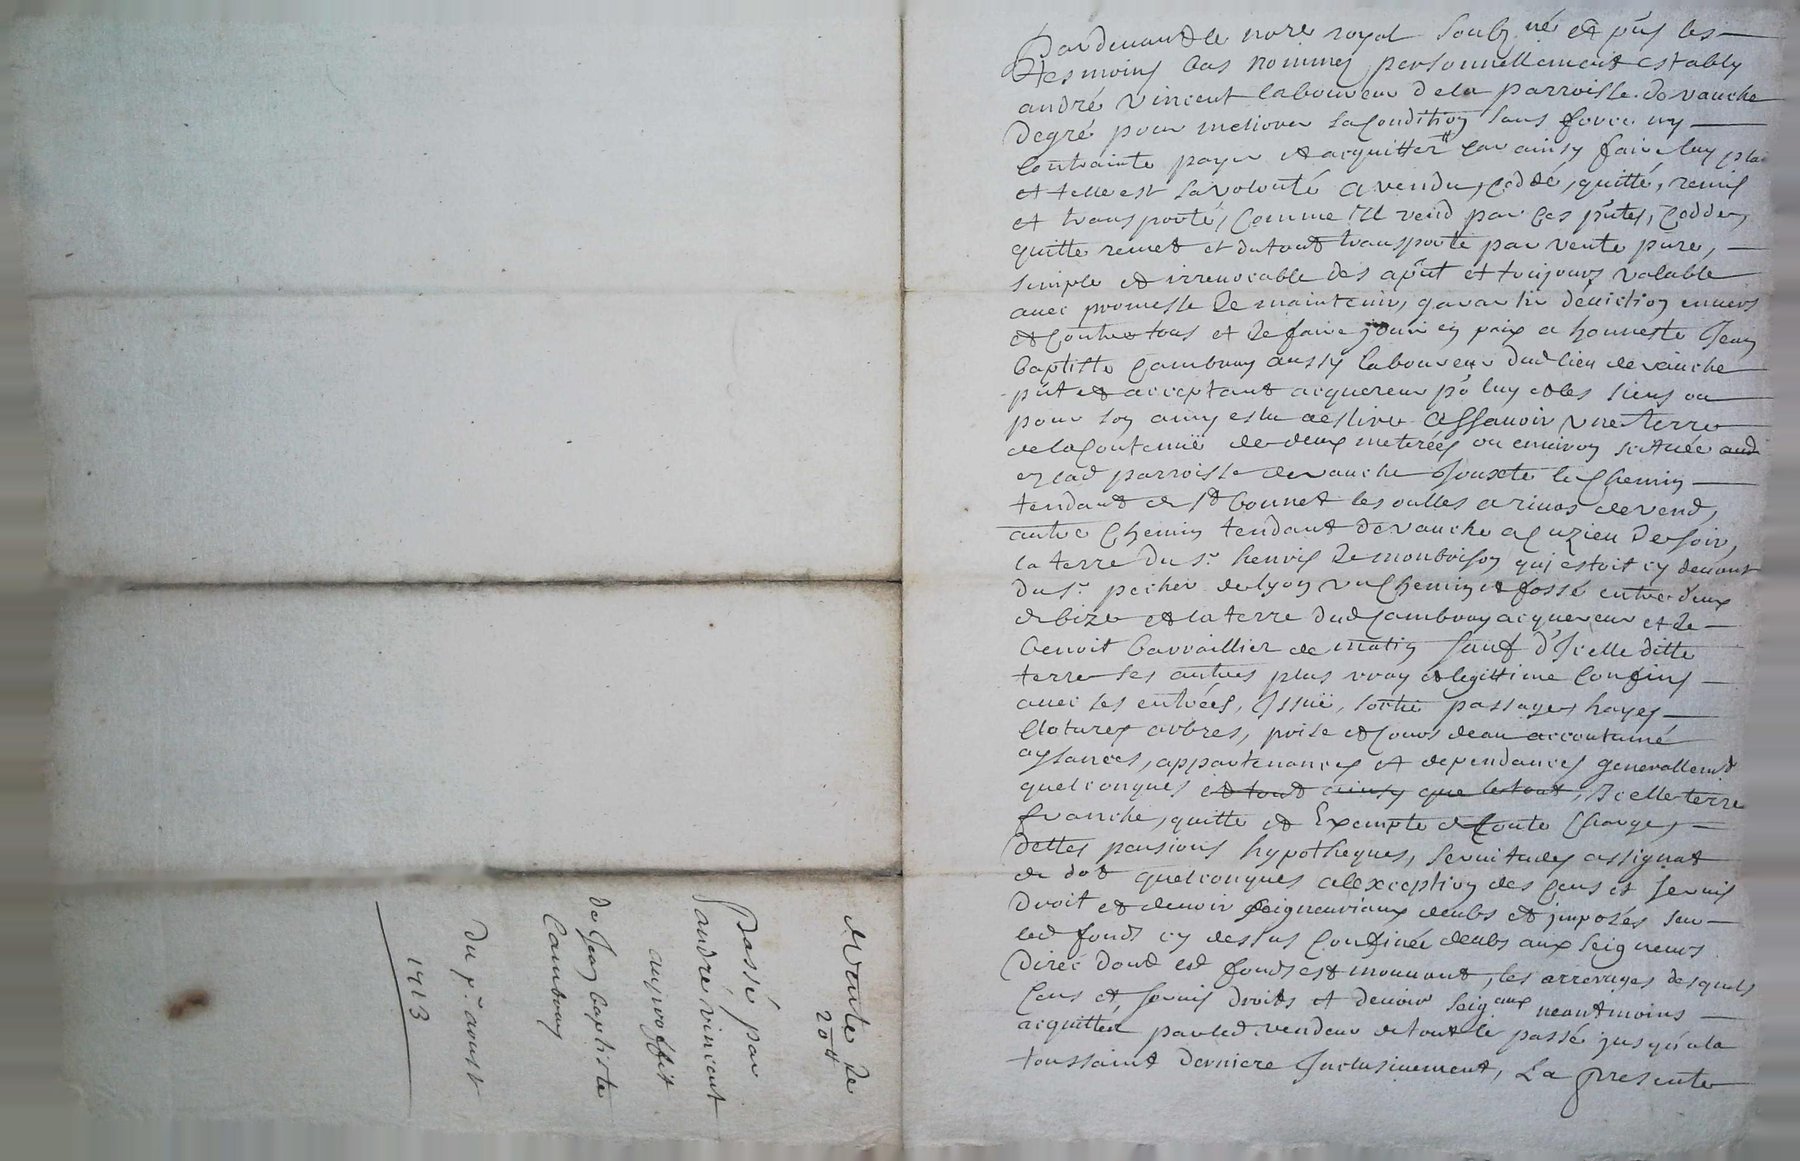 Pardevant le no.re royal soubz.né et p.ns les
tesmoins bas nommez personnellement estably
andré vincent laboureur de la parroisse de vauche
degré pour meliorer sa condition sans force ny
contrainte payer et acquitter car ainsy faire luy plai
et telle est sa volonté a vendu, ceddé, quitté, remis
et transporté, comme Il vend par ces p.ntes, cedde,
quitte remet et du tout transporte par vente pure,
simple et irrevocable des ap.nt et toujours valable
avec promesse de maintenir, garantir d'eviction envers
et contre tous et de faire jouir en paix a honneste Jean
baptiste Cambray aussy laboureur dud lieu de vauche
p.nt et acceptant acquereur p.r luy et les siens ou
pour son amy eslu a eslire assavoir une terre
de la contenuë de deux meterées ou environ scituée
en lad parroisse de vauche Jouxte le chemin
tendant de s.t bonnet les oulles a rivas de vend,
autre chemin tendant de vauche a cuzieu de soir,
la terre du s.r henris de montbrison qui estoit cy devant
du s.r pecher de lyon un chemin et fossé entre deux
de bize et la terre dud Cambray acquereur et de
benoit barvaillier de matin sauf d'Icelle ditte
terre ses autres plus vray et legittime confins
avec ses entrées, Issuë, sortie passages hayes
clotures arbres, prise et cours deau accoutumé
aysances, appartenances et dependances generallem.t
quelconques et tout ainsy que le tout, Icelle terre
franche, quitte et Exempte de toute charges,
dettes pensions hypotheques, servitudes assignat
de dot quelconques a lexception des cens et servis
droit et devoir seigneuriaux deubs et imposés sur
led fonds cy dessus confinée deubs aux seigneurs
direc dont led fonds est mouvant, les arrerages desquels
cens et servis droits et devoir seig.aux neantmoins
acquittés par led. vendeur de tout le passé jusqu'a la
toussaint derniere Inclusivement, La presente
Vente de
20#
Passé par
andré vincent
au proffit
de Jean baptiste
Cambray
Du p.r aoust
1713